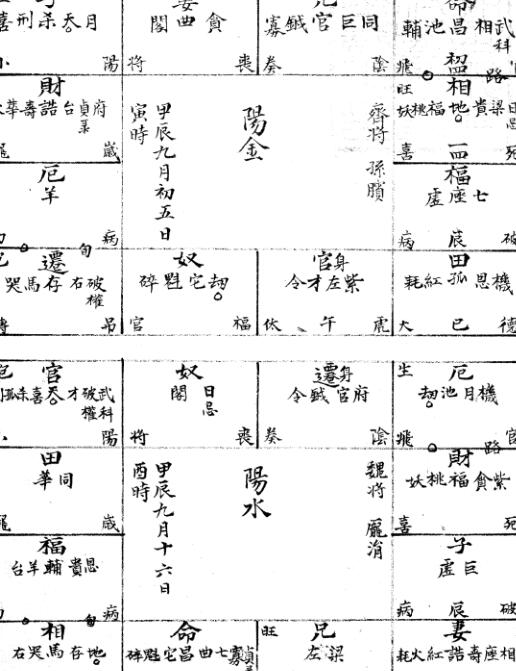 月天杀刑喜
陽
貪曲閣
將
喪
同巨官鉞寡
奏
陰
武相昌池輔
科
飛
路
財
府貞台誥壽華
歲
甲辰九月初五日
寅時
陽金
齊將 孫臏
旺相
梁貴福桃妖
地
喜
死
厄
羊
病
福
七座虛
病
辰
破
遷
破右存馬哭
權
旬
吊
奴
劫它魁碎
官
福
官身
紫左才令
伏
午
虎
田
機恩孤紅耗
大
巳
德
官
武破才天喜
科權
陽
奴
日閣
忌
將
喪
遷身
府官鉞令
奏
陰
生
厄
機月池劫
飛
官
路
田
同華
歲
甲辰九月十六日
酉時
陽水
魏將 龐涓
財
紫貪福桃妖
喜
死
福
恩貴輔羊台
病
子
巨虛
病
辰
破
相
地存馬哭右
命
七曲昌它魁碎
旺
兄
梁左
妻
相座壽誥紅火耗